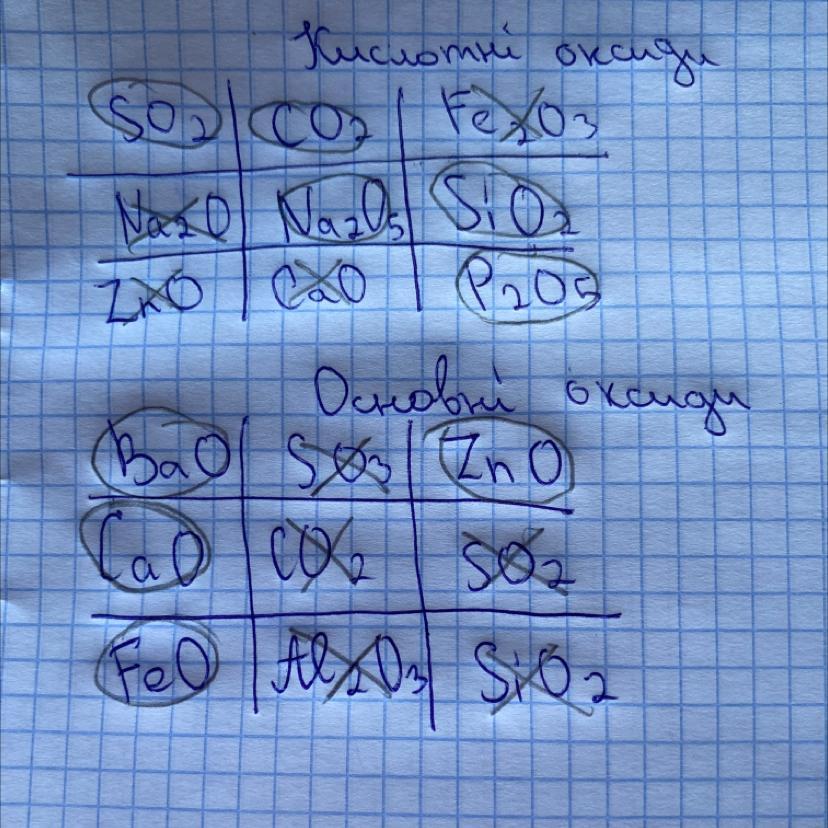 Кислотні оксиди
SO2 CO2 Fe2O3
Na2O Na2O5 SiO2
ZnO CaO P2O5
Основні оксиди
BaO SO3 ZnO
CaO CO2 SO2
FeO Al2O3 SiO2